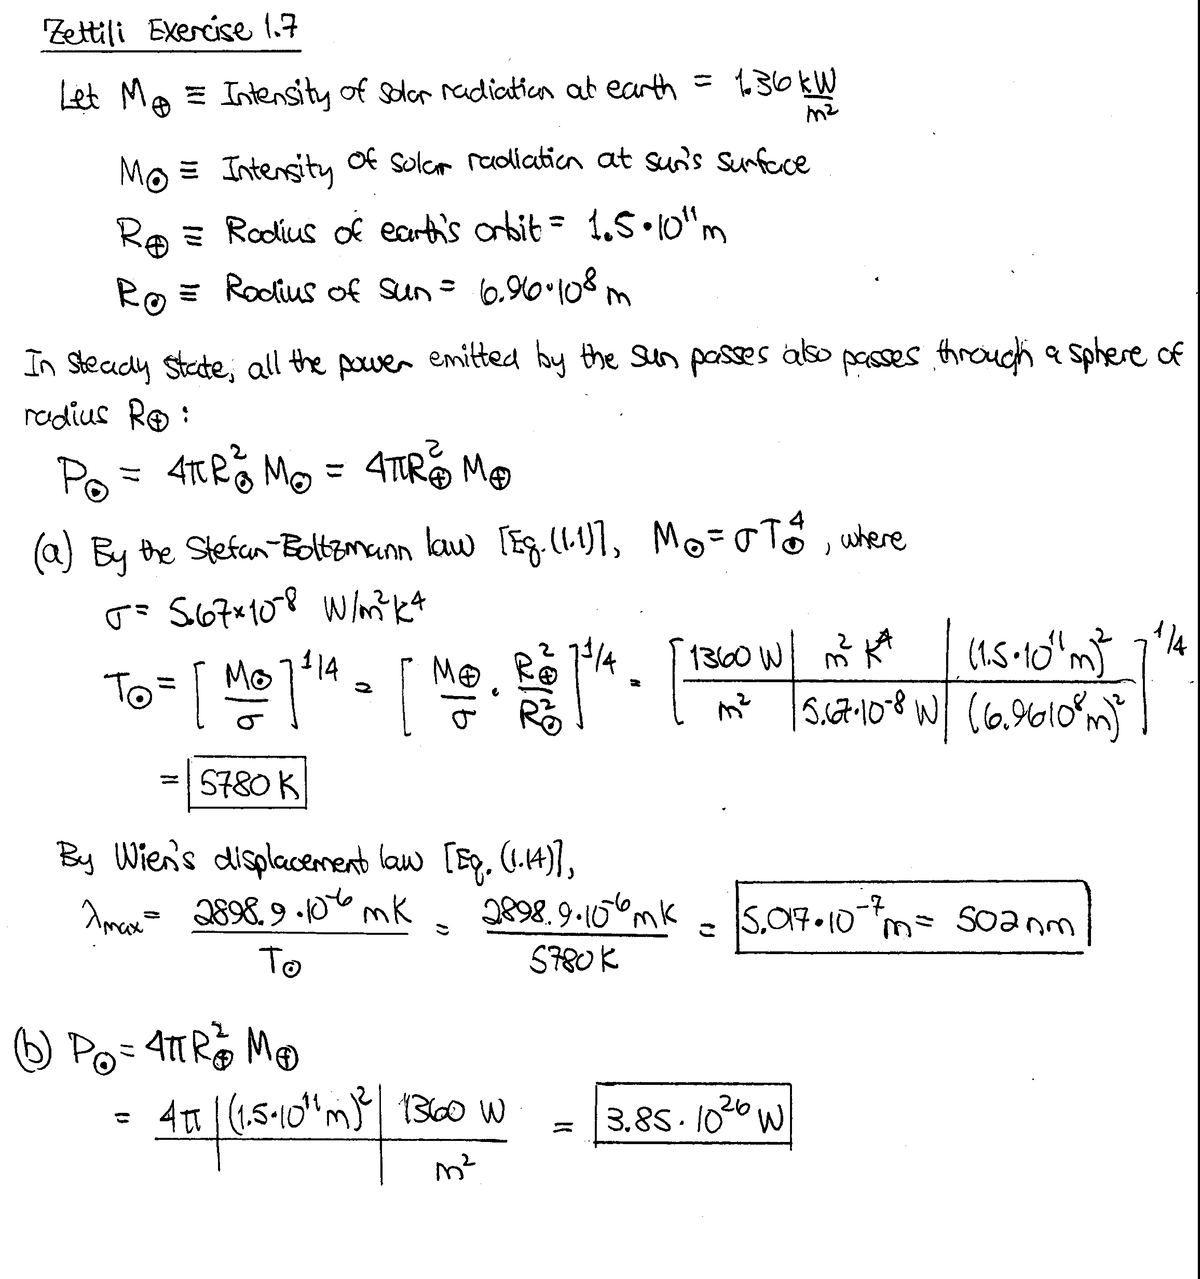 Zettili Exercise 1.7
Let M⊕ ≡ Intensity of solar radiation at earth = 1.36 kW/m²
M⊙ ≡ Intensity of solar radiation at sun's surface
R⊕ ≡ Radius of earth's orbit = 1.5·10¹¹ m
R⊙ ≡ Radius of sun = 6.96·10⁸ m
In steady state, all the power emitted by the sun passes also passes through a sphere of
radius R⊕ :
P⊙ = 4πR⊙² M⊙ = 4πR⊕² M⊕
(a) By the Stefan-Boltzmann law [Eq. (1.1)], M⊙ = σT⊙⁴, where
σ = 5.67×10⁻⁸ W/m²K⁴
T⊙ = [M⊙/σ]^1/4 = [M⊕/σ · R⊕²/R⊙²]^1/4 = [1360 W/m² | m² K⁴/5.67·10⁻⁸ W | (1.5·10¹¹ m)²/(6.96 10⁸ m)²]^1/4
= 5780 K
By Wien's displacement law [Eq. (1.14)],
λmax = 2898.9·10⁻⁶ mK/T⊙ = 2898.9·10⁻⁶ mK/5780 K = 5.017·10⁻⁷ m = 502 nm
(b) P⊙ = 4πR⊕² M⊕
= 4π | (1.5·10¹¹ m)² | 1360 W/m² = 3.85·10²⁶ W